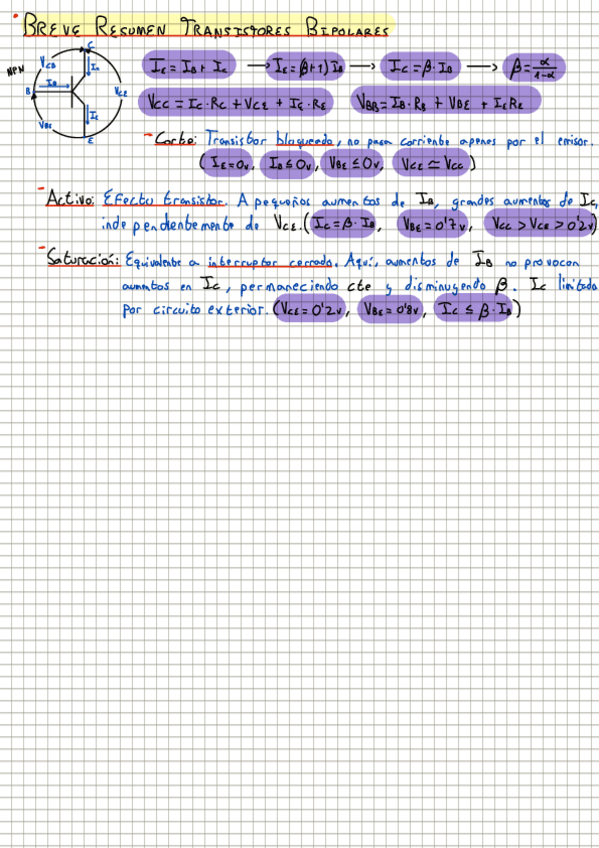 BREVE RESUMEN TRANSISTORES BIPOLARES
NPN
C
V_CB
I_C
I_B
B
V_CE
V_BE
I_E
E
I_E = I_B + I_C → I_E = (β+1) I_B → I_C = β · I_B → β = α/(1-α)
V_CC = I_C · R_C + V_CE + I_E · R_E V_BB = I_B · R_B + V_BE + I_E R_E
- Corte: Transistor bloqueado, no pasa corriente apenas por el emisor.
(I_E = 0v, I_B ≤ 0v, V_BE ≤ 0v, V_CE ≃ V_CC)
- Activo: Efecto transistor. A pequeños aumentos de I_B, grandes aumentos de I_C,
independientemente de V_CE. (I_C = β · I_B, V_BE = 0'7v, V_CC > V_CE > 0'2v)
- Saturación: Equivalente a interruptor cerrado. Aquí, aumentos de I_B no provocan
aumentos en I_C, permaneciendo cte y disminuyendo β. I_C limitada
por circuito exterior. (V_CE = 0'2v, V_BE = 0'8v, I_C ≤ β · I_B)